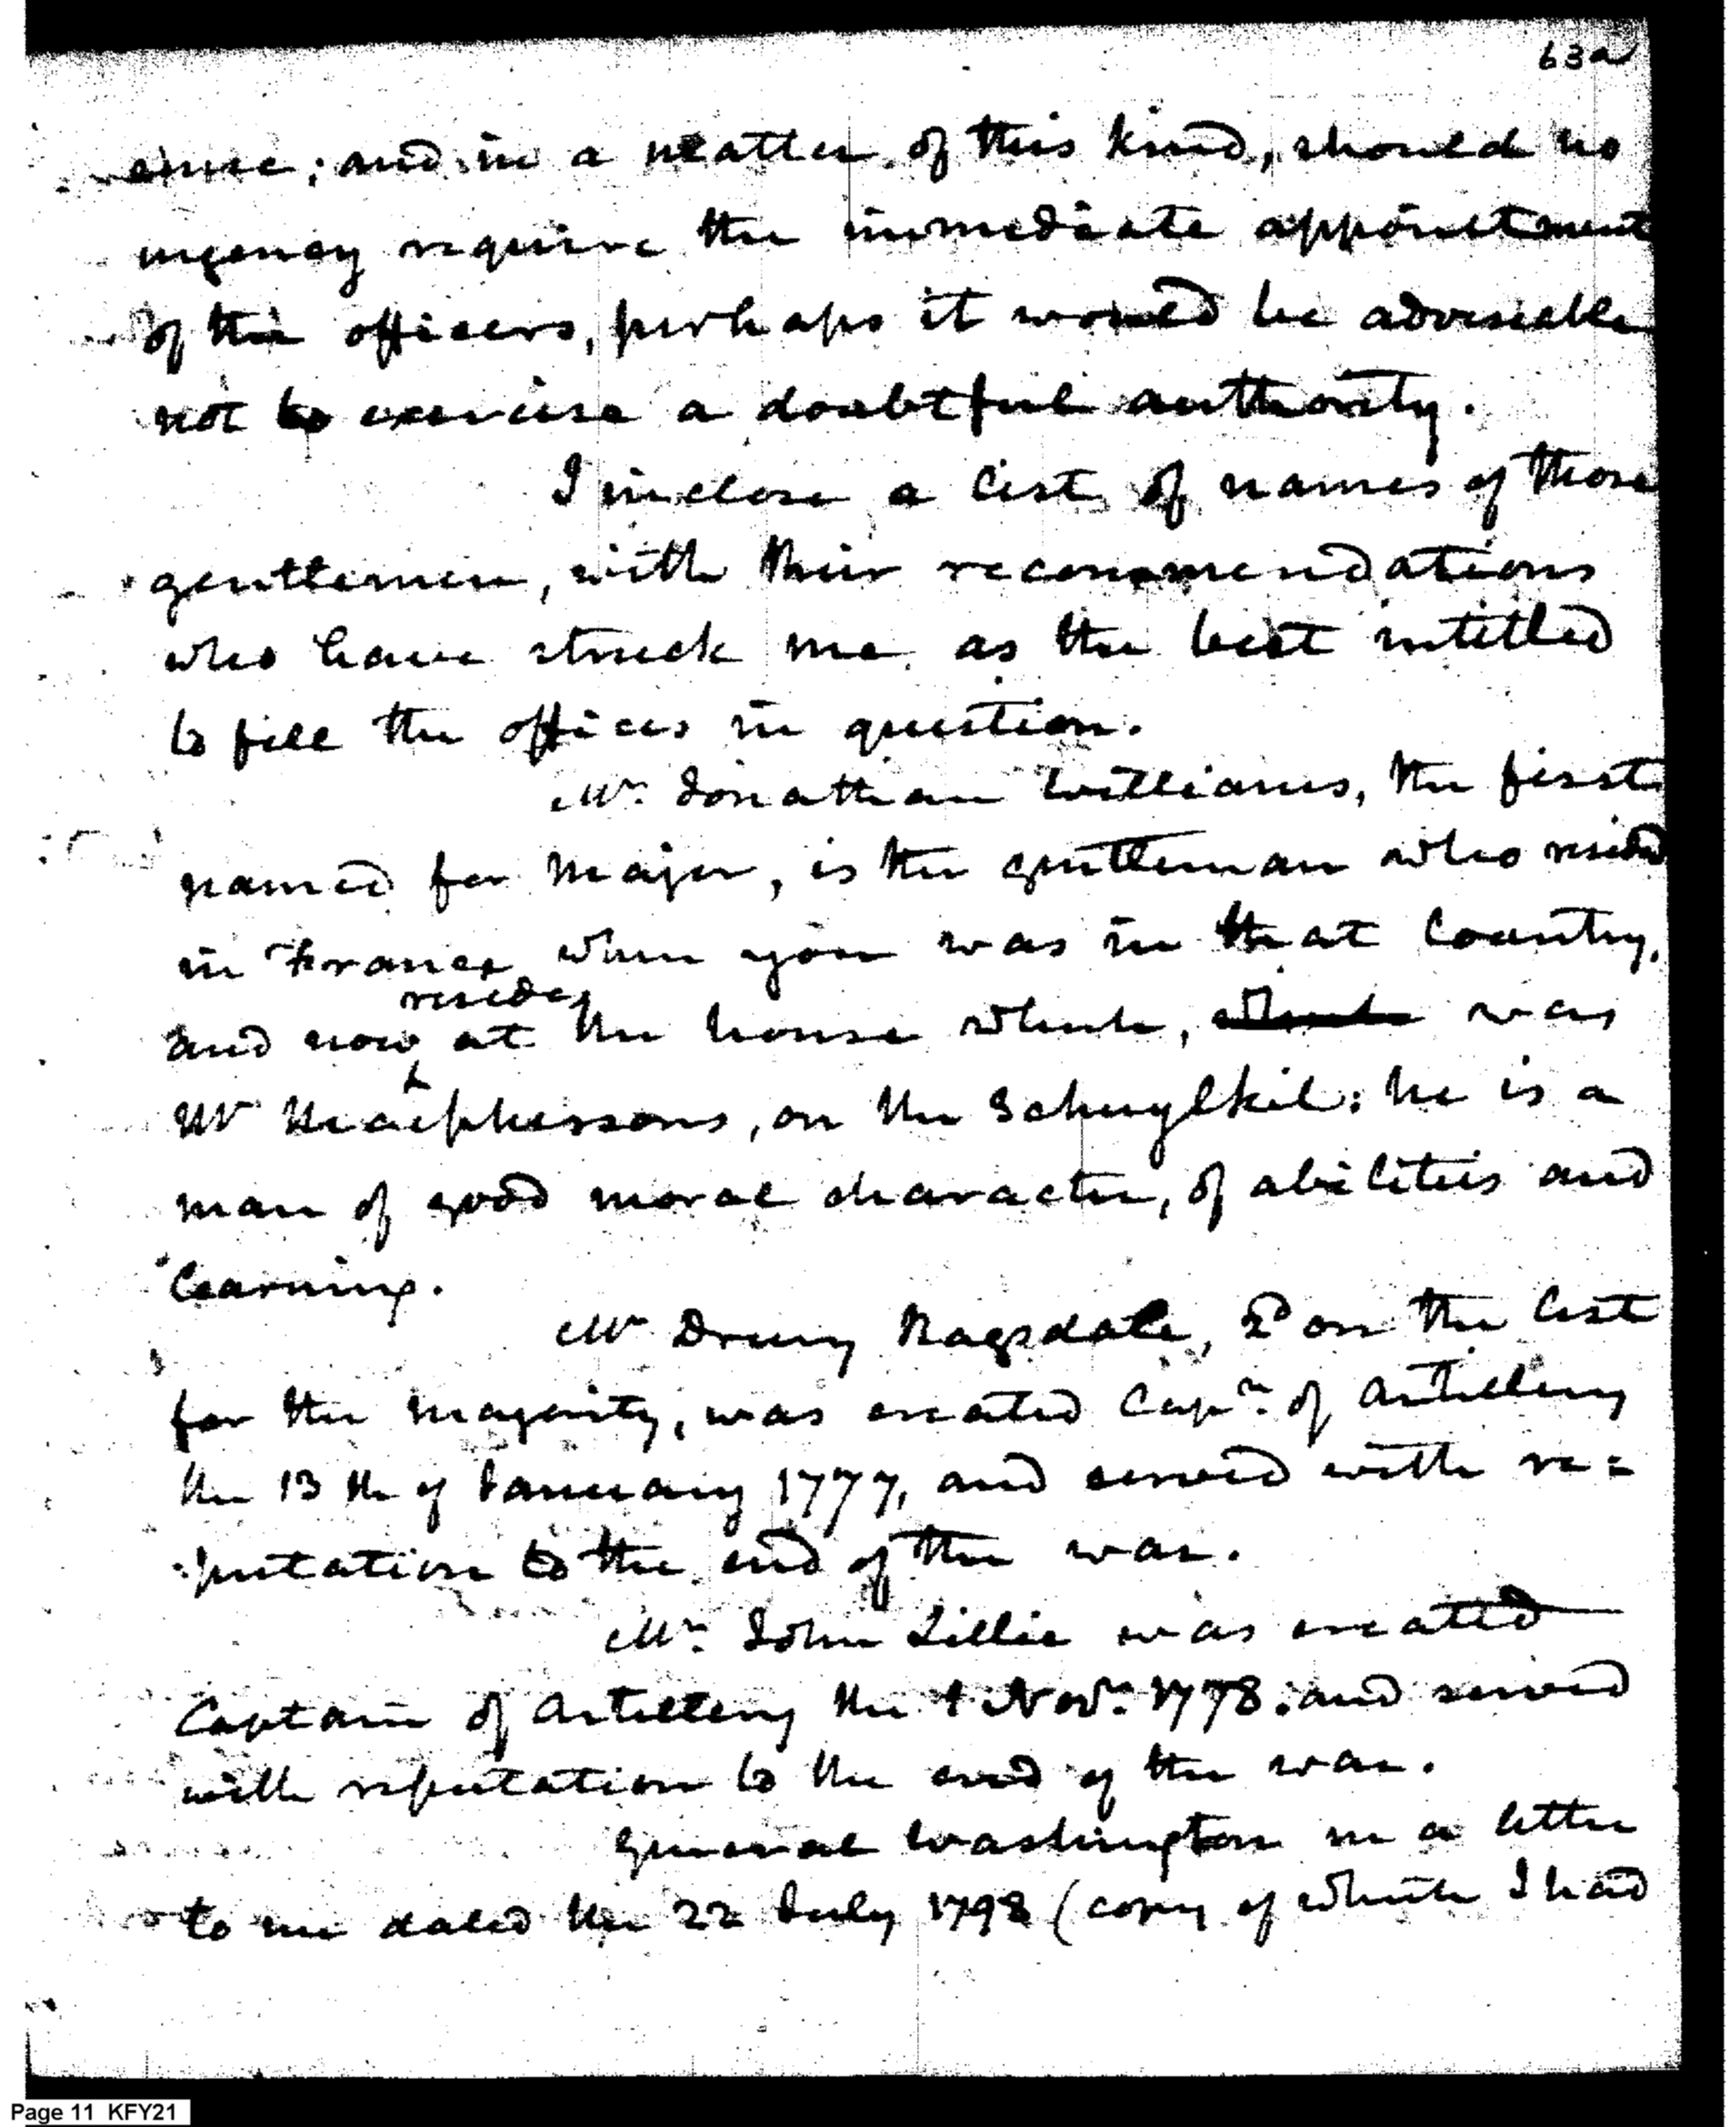 63a
sence; and in a matter of this kind, should no
urgency require the immediate appointment
of the officers, perhaps it would be adviseable
not to exercise a doubtful authority.
I inclose a list of names of those
gentlemen, with their recommendations
who have struck me as the best intitled
to fill the offices in question.
Mr. Jonathan Williams, the first
named for Major, is the gentleman who resided
in France when you was in that Country,
resides
and now at the house which, which was
Mr Macphersons, on the Schuylkil: he is a
man of good moral character, of abilities and
learning.
Mr Drury Ragsdale, 2d on the list
for the majority, was created Capn. of Artillery
the 13th of January 1777, and served with re=
putation to the end of the war.
Mr. John Lillie was created
Captain of Artillery the 1 Novr. 1778: and served
with reputation to the end of the war.
General Washington in a letter
to me dated the 22 July 1798 (copy of which I had
Page 11 KFY21